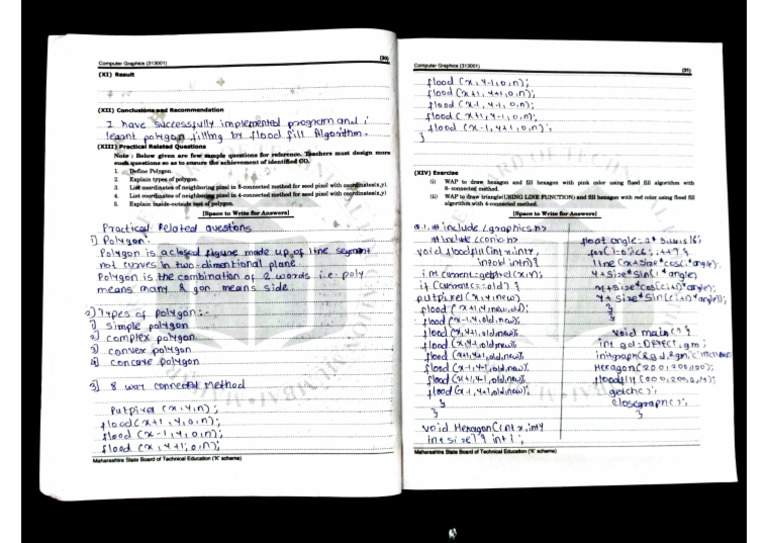 Computer Graphics (313001)
(30)
(XI) Result
(XII) Conclusions and Recommendation
I have successfully implemented program and i
learnt polygon filling by flood fill Algorithm.
(XIII) Practical Related Questions
Note : Below given are few sample questions for reference. Teachers must design more
such questions so as to ensure the achievement of identified CO.
1. Define Polygon.
2. Explain types of polygon.
3. List coordinates of neighboring pixel in 8-connected method for seed pixel with coordinates(x,y)
4. List coordinates of neighboring pixel in 4-connected method for seed pixel with coordinates(x,y)
5. Explain inside-outside test of polygon.
[Space to Write for Answers]
Practical Related questions
1) Polygon:
Polygon is a closed figure made up of line segment
not curves in two-dimentional plane.
Polygon is the combination of 2 words i.e. poly
means many & gon means side.
2) Types of polygon:-
1) simple polygon
2) complex polygon
3) convex polygon
4) concave polygon
3) 8 way connected Method
Putpixel (x,y,n);
flood(x+1, y,o,n);
flood (x-1,y,o,n);
flood (x,y+1,o,n);
Maharashtra State Board of Technical Education ('K' scheme)
Computer Graphics (313001)
(31)
flood (x,y-1,o,n);
flood (x+1, y+1,o,n);
flood (x+1, y-1,o,n);
flood (x+1, y-1,o,n);
flood (x-1, y+1,o,n);
}
(XIV) Exercise
(i) WAP to draw hexagon and fill hexagon with pink color using flood fill algorithm with
8- connected method.
(ii) WAP to draw triangle(USING LINE FUNCTION) and fill hexagon with red color using flood fill
algorithm with 4-connected method.
[Space to Write for Answers]
# include <graphics.h>
#include <conio.h>
void floodfill(int x,int y,
int old, int n){
int current=getpixel(x,y);
if (current==old) {
putpixel (x,y,new)
flood (x+1,y,new,old);
flood (x-1,y,old,new);
flood (x,y+1,old,new);
flood (x,y-1,old,new);
flood (x+1,y+1,old,new);
flood (x-1,y-1,old,new);
flood (x+1,y-1,old,new);
flood (x-1,y+1,old,new);
}
}
void Hexagon(int x,int y
int size) { int i;
float angle=
line (x+size*cos(i*angle),
y+size*sin(i*angle)
x+size*cos((i+1)*angle),
y+size*sin((i+1)*angle));
}
}
void main() {
int gd=DETECT,gm;
initgraph(&gd,&gm,
Hexagon(200,200,100);
getch();
closegraph();
}
Maharashtra State Board of Technical Education ('K' scheme)